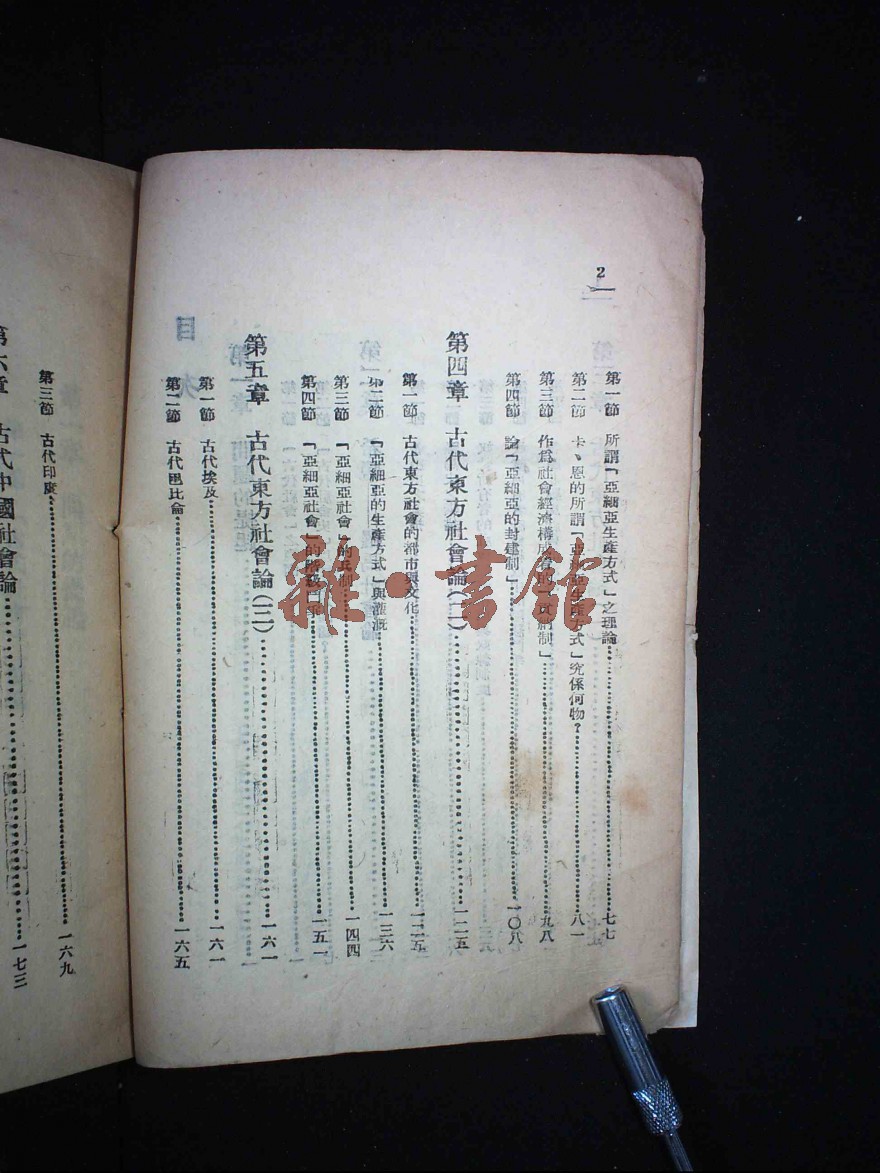 2
第一節 所謂「亞細亞生產方式」之理論……七七
第二節 卡、恩的所謂「亞細亞生產方式」究係何物？……八一
第三節 作爲社會經濟構成着的「貢納制」……九八
第四節 論「亞細亞的封建制」……一〇八
第四章 古代東方社會論(一)……一二五
第一節 古代東方社會的都市與文化……一二五
第二節 「亞細亞的生產方式」與灌漑……一三六
第三節 「亞細亞社會」的兵制……一四四
第四節 「亞細亞社會」的階級……一五一
第五章 古代東方社會論(二)……一六一
第一節 古代埃及……一六一
第二節 古代巴比倫……一六五
第三節 古代印度……一六九
第六章 古代中國社會論……一七三
雜·書館